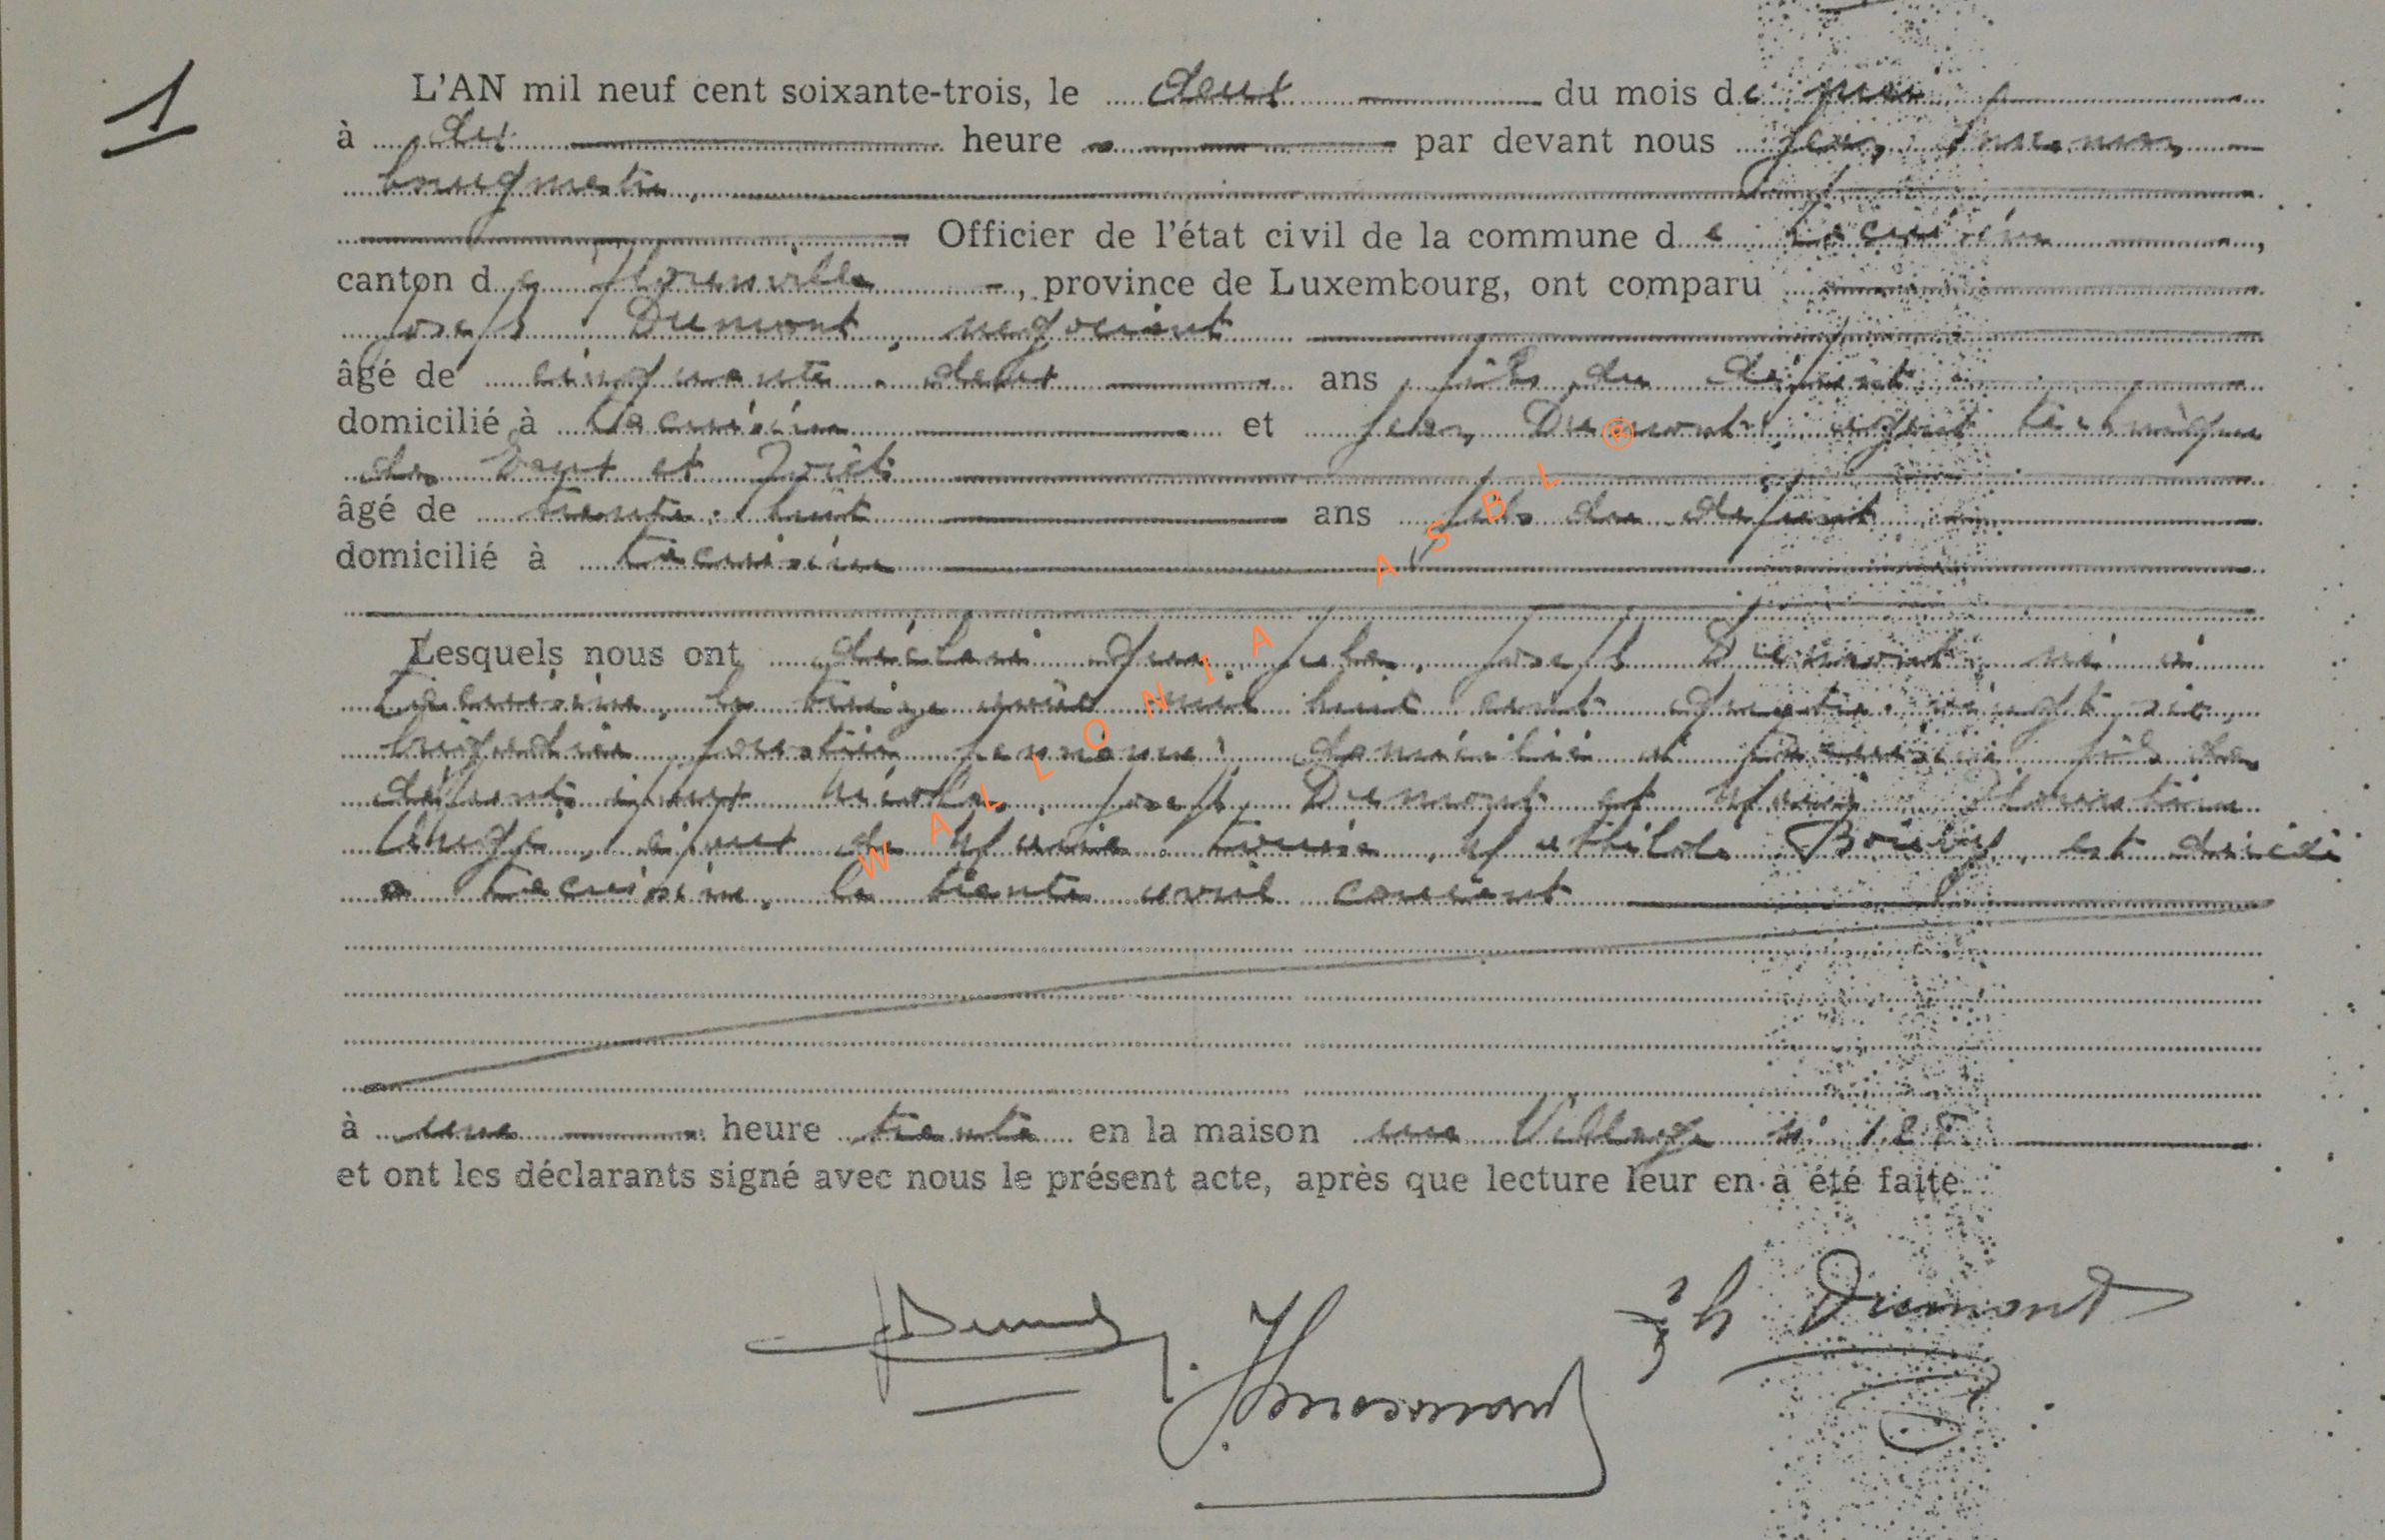 1
L'AN mil neuf cent soixante-trois, le deux du mois de mai
à dix heure par devant nous Jean
bourgmestre,
Officier de l'état civil de la commune de Lacuisine,
canton de Florenville, province de Luxembourg, ont comparu
Joseph Dumont, négociant
âgé de cinquante-deux ans fils du défunt
domicilié à Lacuisine et Jules Dumont, agent technique
des Eaux et Forêts
âgé de trente-huit ans fils du défunt
domicilié à Lacuisine
Lesquels nous ont déclaré que Jules, Joseph Dumont, né à
Lacuisine, le treize août mil huit cent quatre-vingt-six,
brigadier forestier pensionné, domicilié à Lacuisine fils des
défunts époux Nicolas, Joseph, Dumont et Marie Florentine
époux de Marie Louise, Mathilde est décédé
à Lacuisine, le trente avril courant
à une heure trente en la maison rue Village n° 128
et ont les déclarants signé avec nous le présent acte, après que lecture leur en a été faite.
Dumont
WALLONIA ASBL ®